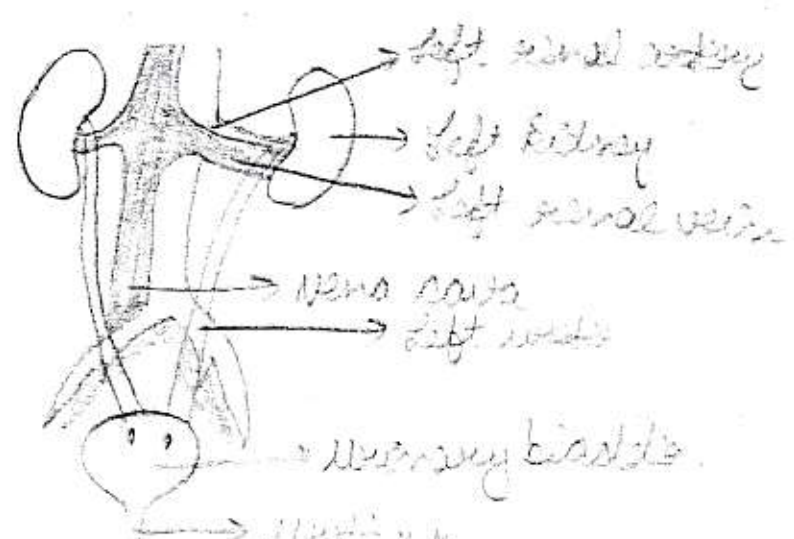 Left renal artery
Left kidney
Left renal vein
Vena cava
Left
Urinary bladder